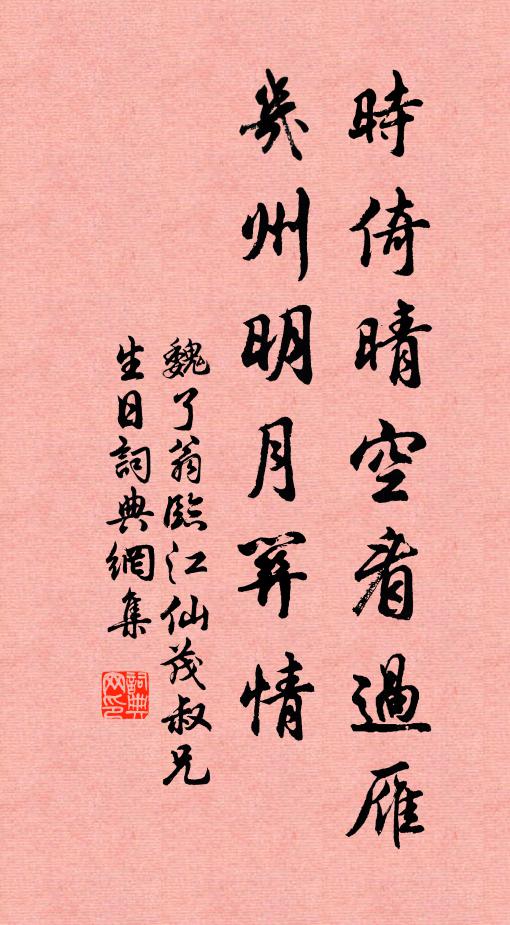 時倚晴空看過雁
幾州明月關情
魏了翁臨江仙茂叔兄
生日詞典網集
詞典網印